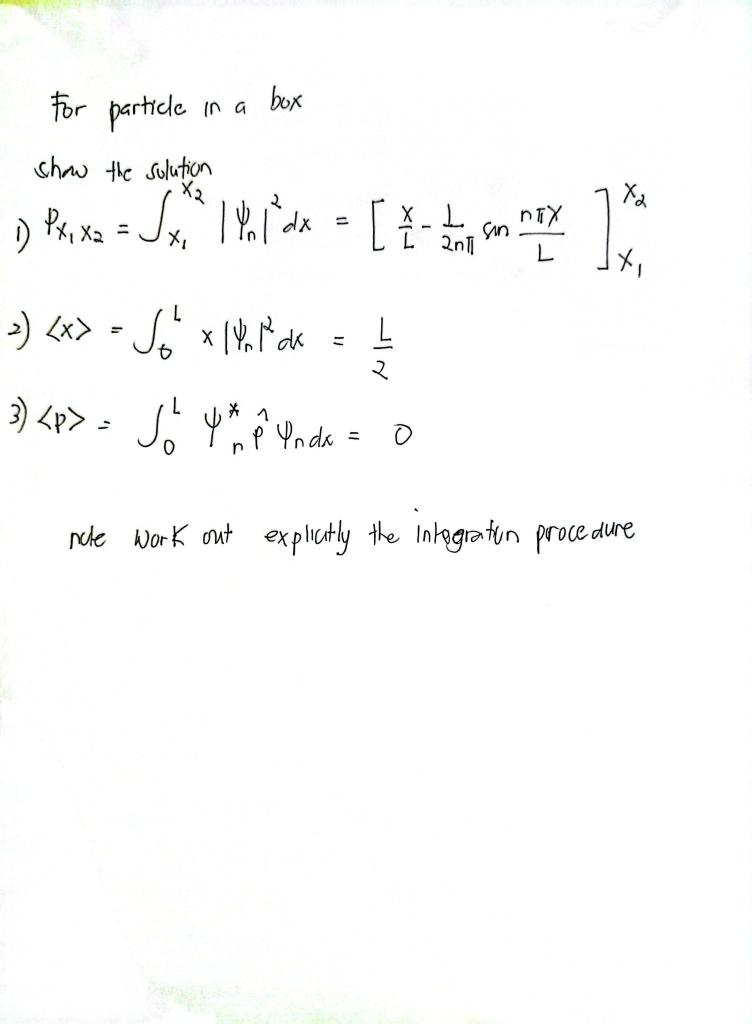 For particle in a box
show the solution
1) Px₁x₂ = ∫x₁^x₂ |ψn|² dx = [ x/L - 1/2nπ sin nπx/L ]x₁^x₂
2) <x> = ∫₀^L x |ψn|² dx = L/2
3) <p> = ∫₀^L ψ*n p̂ ψn dx = 0
note work out explicitly the integration procedure